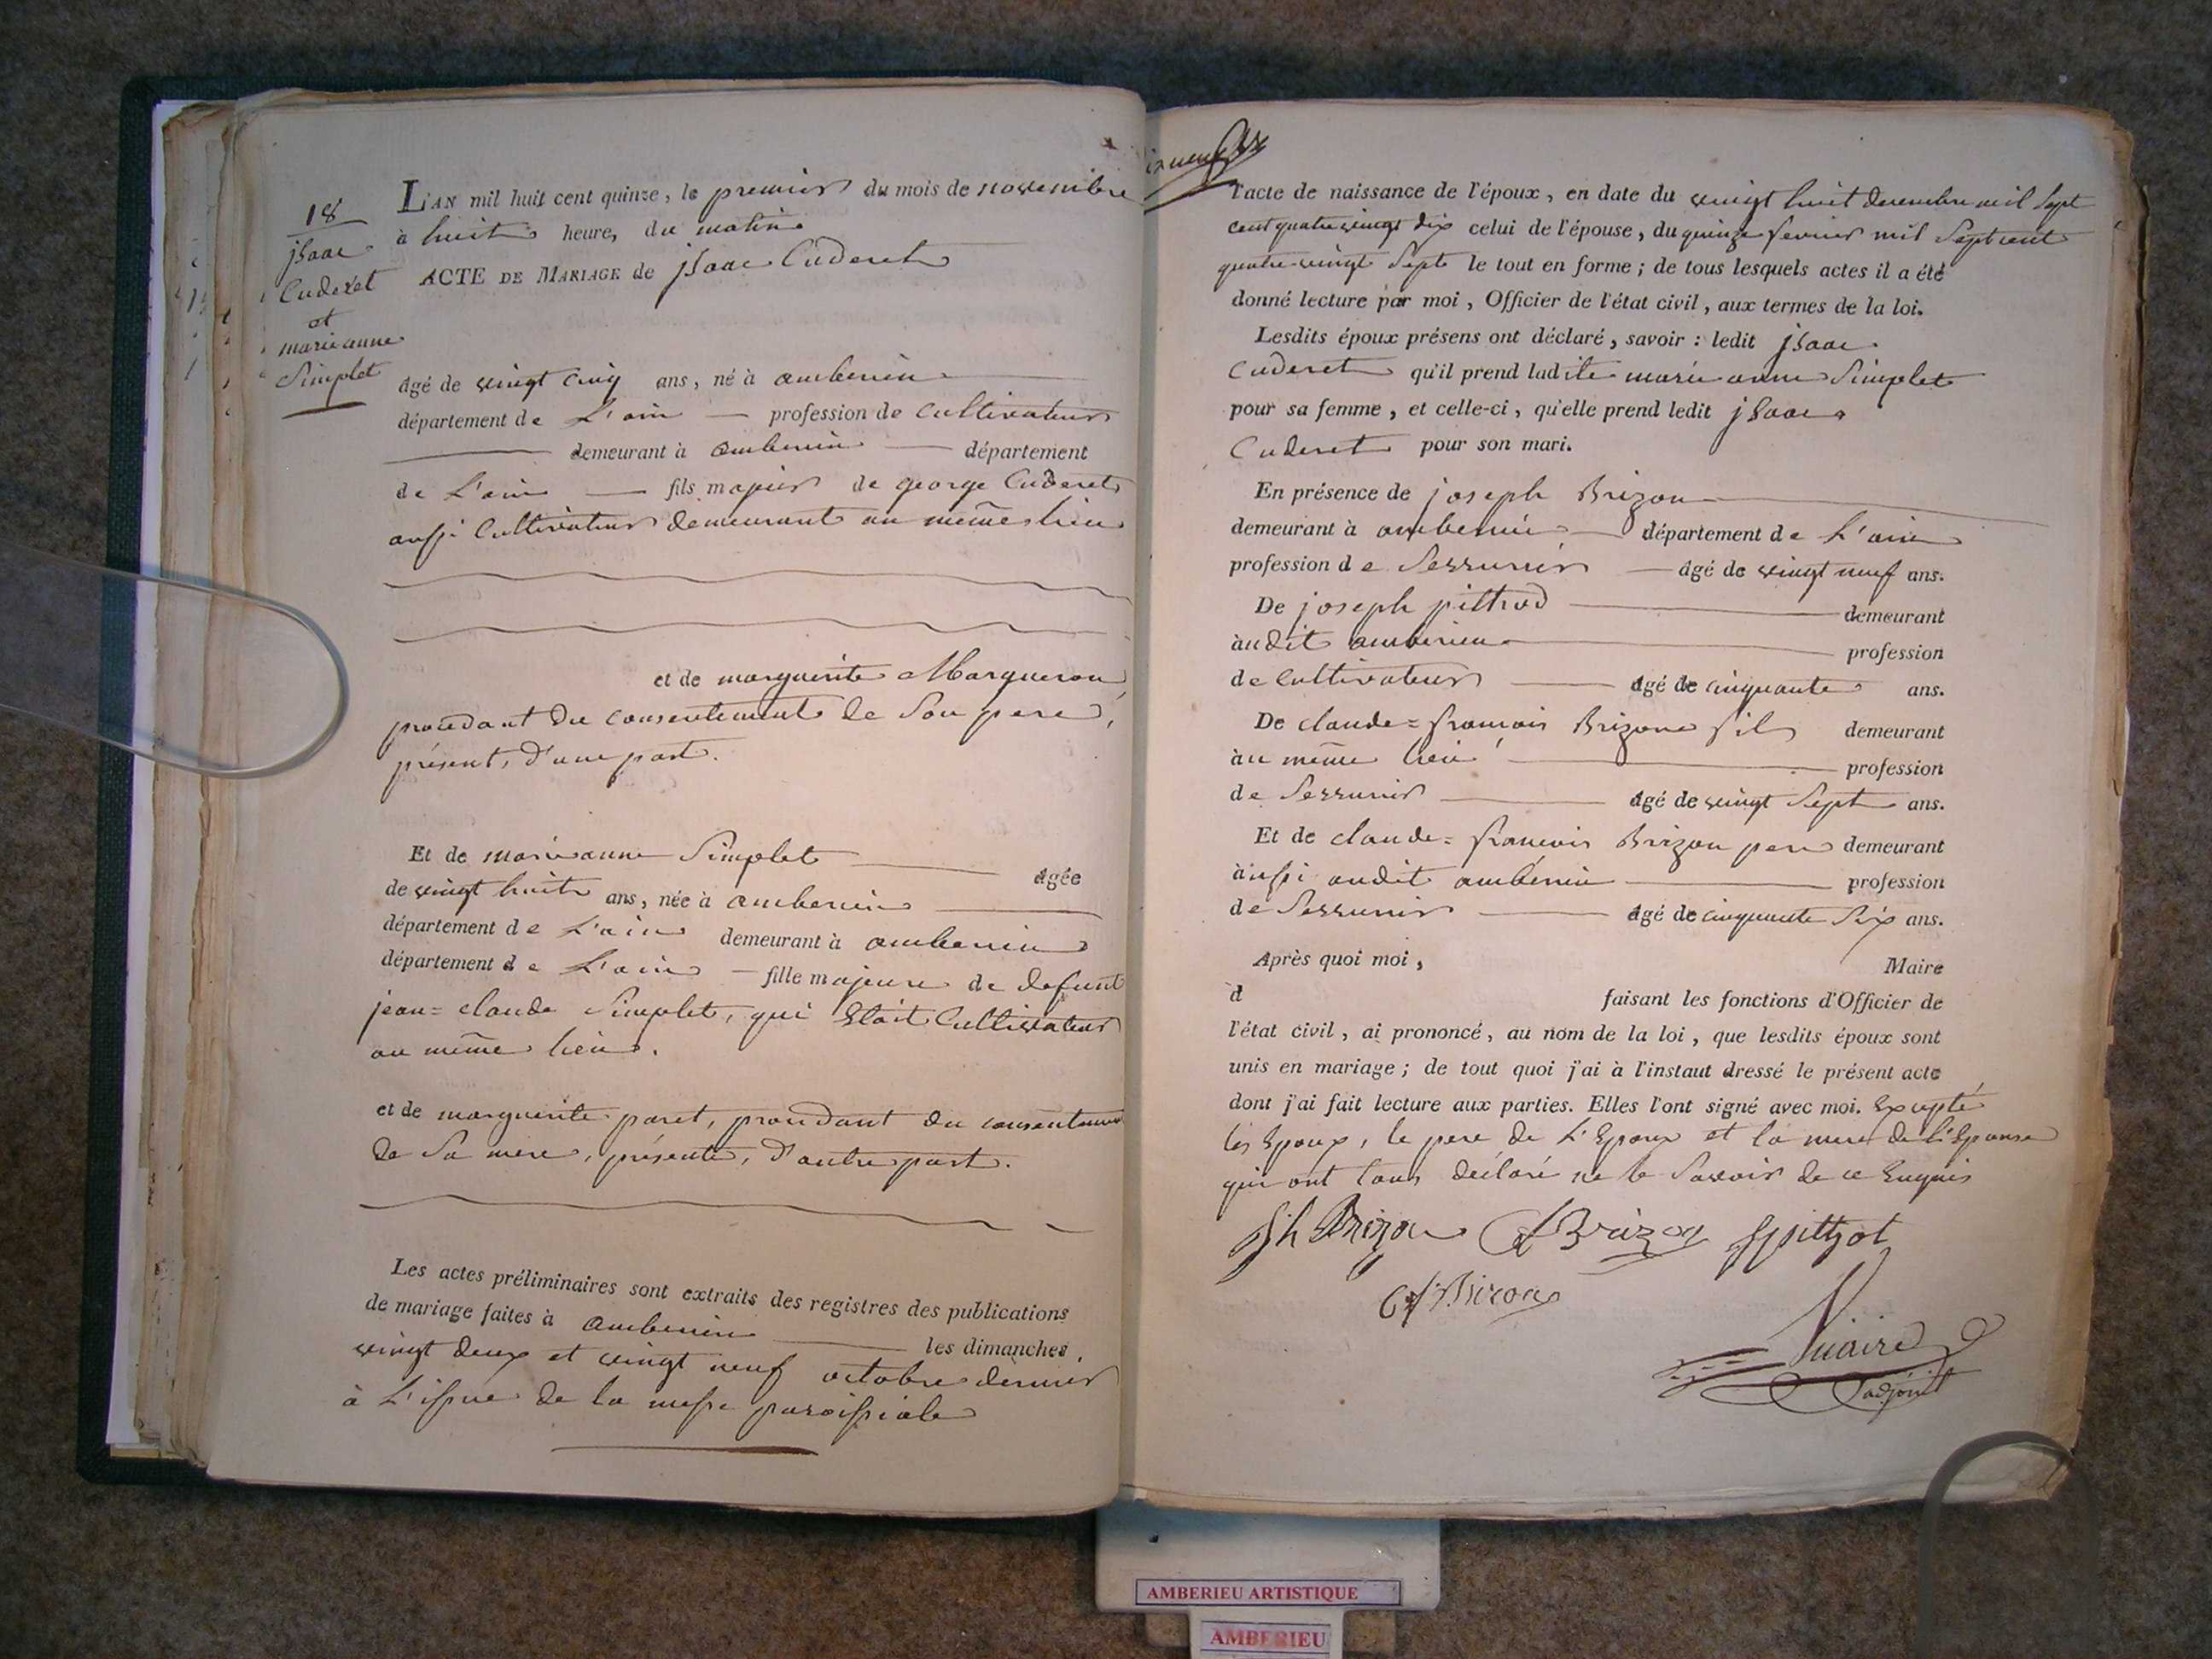 18
jsaac
Cuderet
et
marieanne
Simplet
L'AN mil huit cent quinze, le premier du mois de novembre
à huit heure, du matin
ACTE DE MARIAGE de jsaac Cuderet
âgé de vingt cinq ans, né à amberieu
département de L'ain profession de Cultivateur
demeurant à amberieu département
de L'ain fils majeur de george Cuderet
aussi Cultivateur demeurant au même lieu
et de marguerite Marqueron
procedant du consentement de Son pere,
présent, d'une part.
Et de marieanne Simplet âgée
de vingt huit ans, née à amberieu
département de L'ain demeurant à amberieu
département de L'ain fille majeure de defunt
jean=claude Simplet, qui Etoit Cultivateur
au même lieu.
et de marguerite paret, procedant du consentement
de Sa mere, présente, d'autre part.
Les actes préliminaires sont extraits des registres des publications
de mariage faites à amberieu les dimanches,
vingt deux et vingt neuf octobre dernier
à L'issue de la messe paroissiale
l'acte de naissance de l'époux, en date du vingt huit decembre mil Sept
cent quatre vingt dix celui de l'épouse, du quinze fevrier mil Sept cent
quatre-vingt Sept le tout en forme ; de tous lesquels actes il a été
donné lecture par moi, Officier de l'état civil, aux termes de la loi.
Lesdits époux présens ont déclaré, savoir : ledit jsaac
Cuderet qu'il prend ladite marie anne Simplet
pour sa femme, et celle-ci, qu'elle prend ledit jsaac
Cuderet pour son mari.
En présence de joseph Brizon
demeurant à amberieu département de L'ain
profession de Serrurier âgé de vingt neuf ans.
De joseph pittiod demeurant
àudit amberieu profession
de Cultivateur âgé de cinquante ans.
De claude=francois Brizon fils demeurant
àu même lieu profession
de Serrurier âgé de vingt Sept ans.
Et de claude=francois Brizon pere demeurant
àussi audit amberieu profession
de Serrurier âgé de cinquante Six ans.
Après quoi moi, Maire
d faisant les fonctions d'Officier de
l'état civil, ai prononcé, au nom de la loi, que lesdits époux sont
unis en mariage ; de tout quoi j'ai à l'instaut dressé le présent acte
dont j'ai fait lecture aux parties. Elles l'ont signé avec moi. Excepté
les Epoux, le pere de L'Epoux et la mere de L'Epouse
qui ont tous déclaré ne le Savoir de ce Enquis
Brizon Brizon
adjoint
AMBERIEU ARTISTIQUE
AMBERIEU